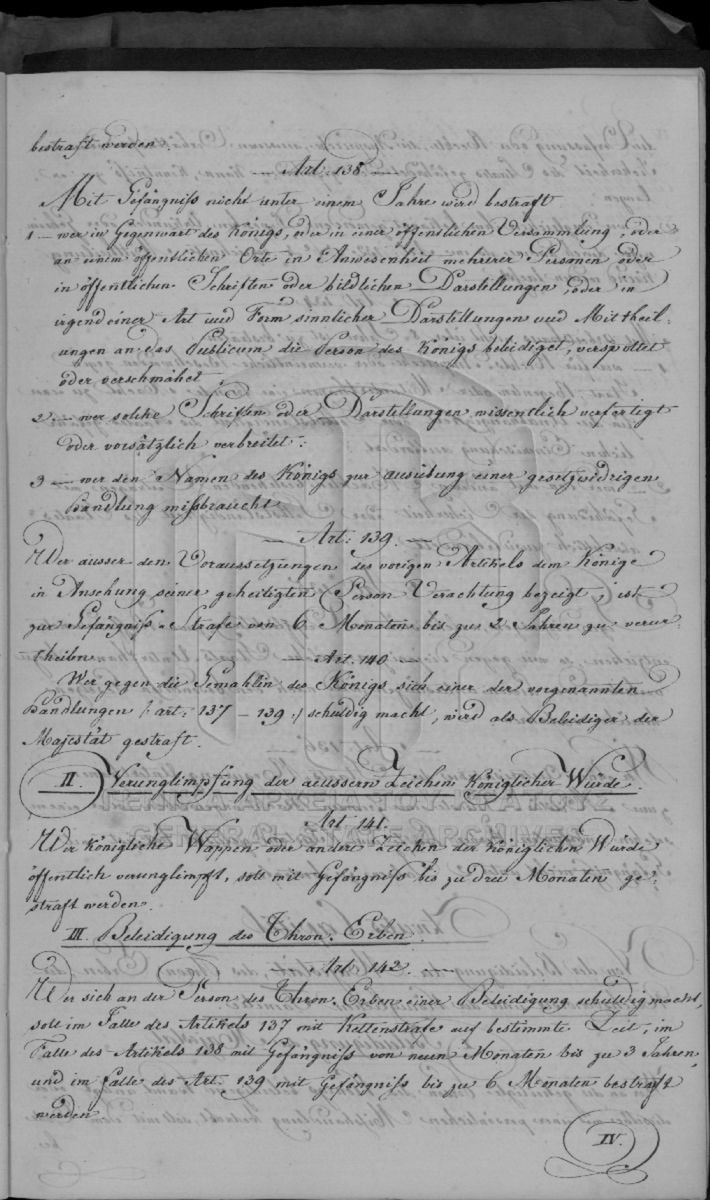 bestraft werden.
— Art: 138 —
Mit Gefängniß nicht unter einem Jahre wird bestraft
1 — wer in Gegenwart des Königs, oder in einer öffentlichen Versammlung, oder
an einem öffentlichen Orte in Anwesenheit mehrerer Personen oder
in öffentlichen Schriften oder bildlichen Darstellungen, oder in
irgend einer Art und Form sinnlicher Darstellungen und Mittheil-
ungen an das Publicum die Person des Königs beleidiget, verspottet
oder verschmähet;
2. — wer solche Schriften oder Darstellungen wissentlich verfertigt
oder vorsätzlich verbreitet:
3 — wer den Namen des Königs zur ausübung einer gesetzwidrigen
Handlung mißbraucht
— Art: 139. —
Wer ausser den Voraussetzungen des vorigen Artikels dem Könige
in Ansehung seiner geheiligten Person Verachtung bezeigt, ist
zur Gefängniß-Strafe von 6 Monaten bis zu 2 Jahren zu verur-
theilen
— Art. 140 —
Wer gegen die Gemahlin des Königs sich einer der vorgenannten
Handlungen /: art: 137 – 139 :/ schuldig macht, wird als Beleidiger der
Majestät gestraft.
II. Verunglimpfung der aeussern Zeichen Königlicher Würde.
Art 141.
Wer Königliche Wappen oder andere Zeichen der Königlichen Würde
öffentlich verunglimpft, soll mit Gefängniß bis zu drei Monaten ge-
straft werden.
III. Beleidigung des Thron-Erben.
— Art. 142. —
Wer sich an der Person des Thron-Erben einer Beleidigung schuldig macht,
soll im Falle des Artikels 137 mit Kettenstrafe auf bestimmte Zeit, im
Falle des Artikels 138 mit Gefängniss von neun Monaten bis zu 3 Jahren,
und im falle des Art. 139 mit Gefängniß bis zu 6 Monaten bestraft
werden
IV.